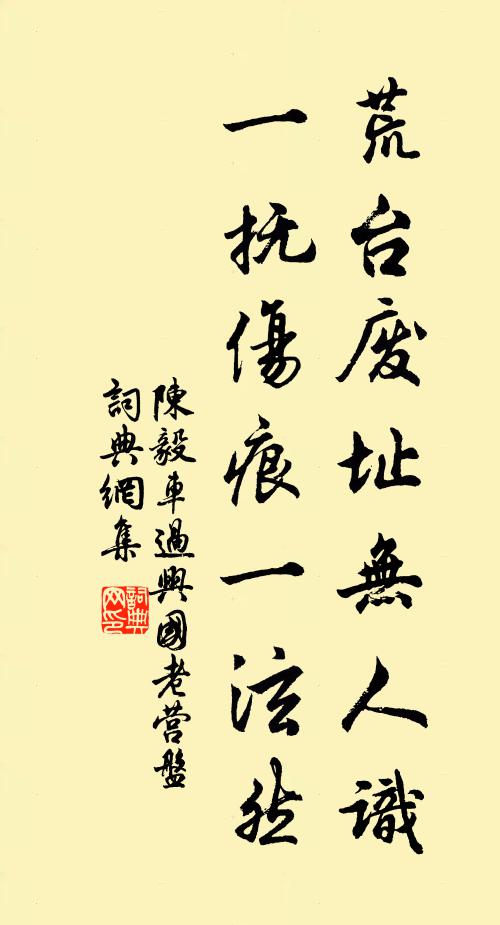 荒台废址無人識
一抚傷痕一泫然
陳毅車過興國老营盤
詞典網集
詞典
网印